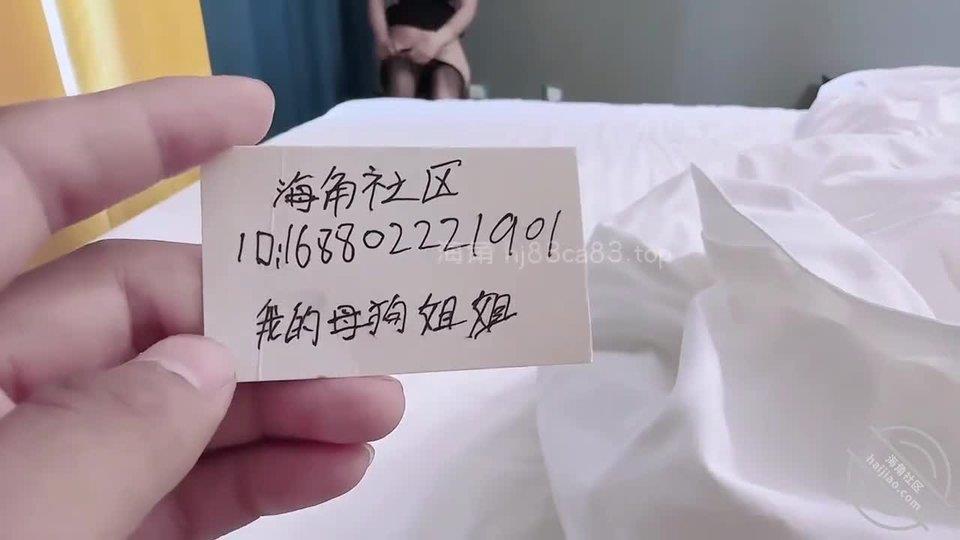 海角社区
ID:168802221901
海角 hj88ca83.top
我的母狗姐姐
海角社区
haijiao.com